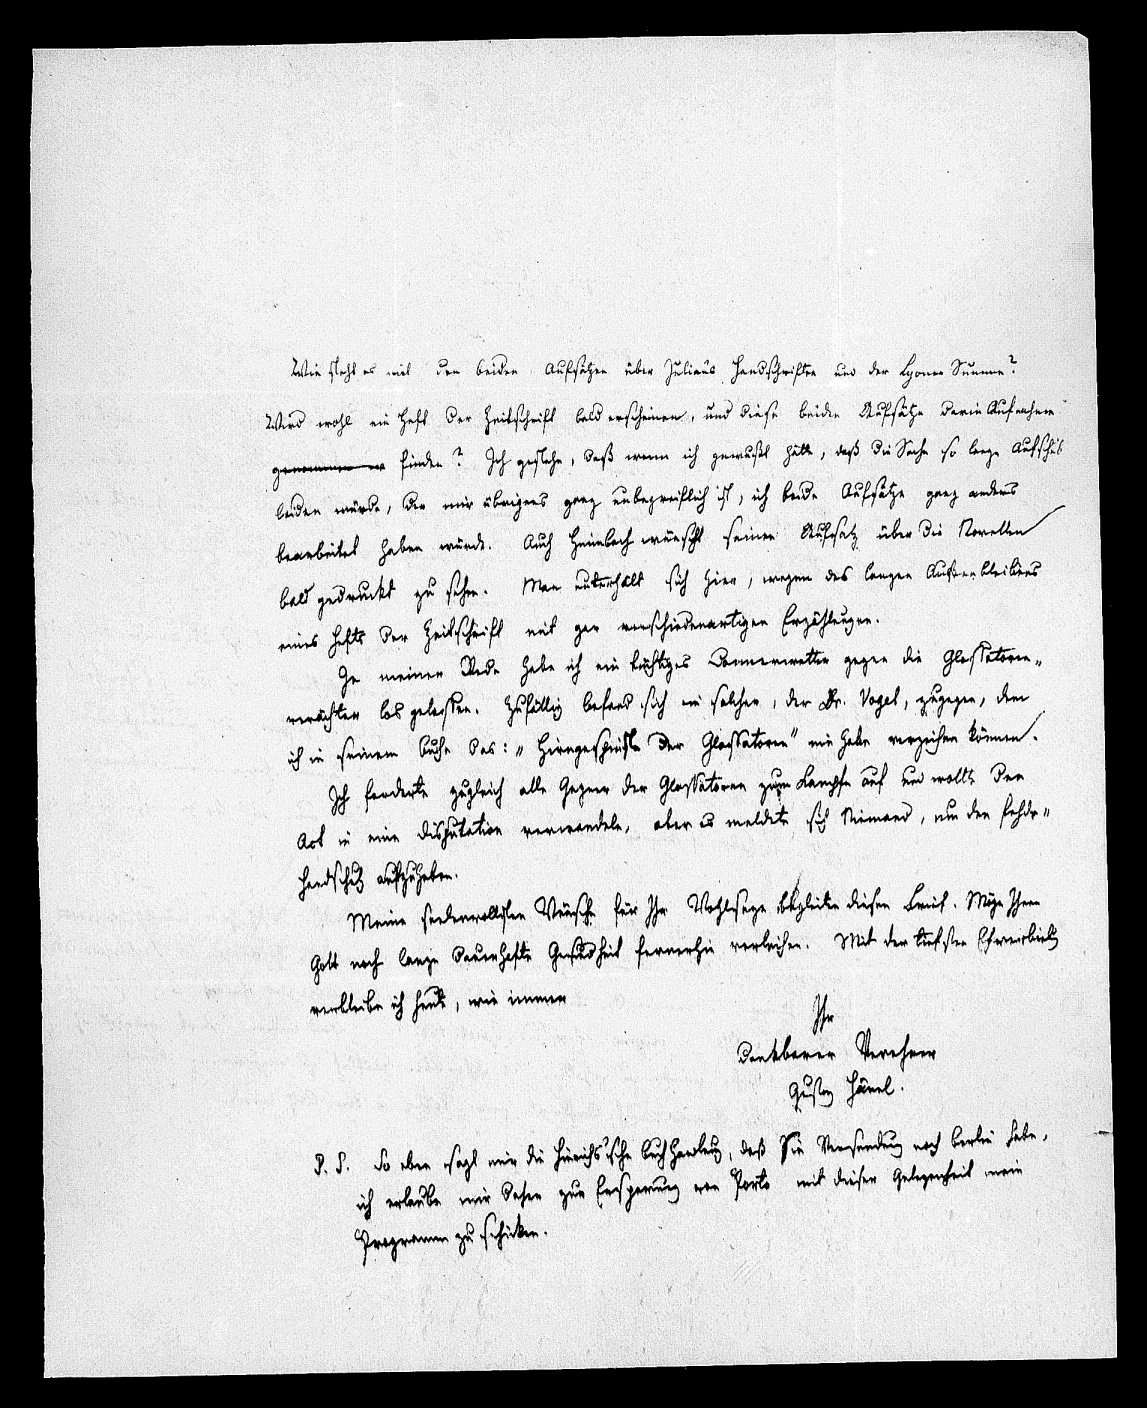 Wie steht es mit den beiden Aufsätzen über Julians Handschriften und der Lyoner Summe?
Wird wohl ein Heft der Zeitschrift bald erscheinen, und diese beiden Aufsätze darin Aufnahme
genommen finden? Ich gestehe, daß wenn ich gewußt hätte, daß die Sache so lange Aufschub
leiden würde, der mir übrigens ganz unbegreiflich ist, ich beide Aufsätze ganz anders
bearbeitet haben würde. Auch Heimbach wünscht seinen Aufsatz über die Novellen
bald gedruckt zu sehen. Man unterhält sich hier, wegen des langen Außenbleibens
eines Hefts der Zeitschrift mit gar verschiedenartigen Erzählungen.
In meiner Rede habe ich ein tüchtiges Donnerwetter gegen die Glossatoren-
verächter los gelassen. Zufällig befand sich ein solcher, der Dr. Vogel, zugegen, dem
ich in seinem Buche das: „Hirngespinste der Glossatoren“ nie habe verzeihen können.
Ich forderte zugleich alle Gegner der Glossatoren zum Kampfe auf und wollte den
Act in eine Disputation verwandeln, aber es meldete sich Niemand, um den Fehde-
handschuh aufzuheben.
Meine seelenvollsten Wünsche für Ihr Wohlseyn begleiten diesen Brief. Möge Ihnen
Gott noch lange dauerhafte Gesundheit fernerhin verleihen. Mit der tiefsten Ehrerbietung
verbleibe ich heute, wie immer
Ihr
dankbarer Verehrer
Gustav Hänel.
P. S. So eben sagt mir die Hinrichs'sche Buchhandlung, daß sie Versendung nach Berlin habe,
ich erlaube mir daher zur Ersparung von Porto mit dieser Gelegenheit mein
Programm zu schicken.